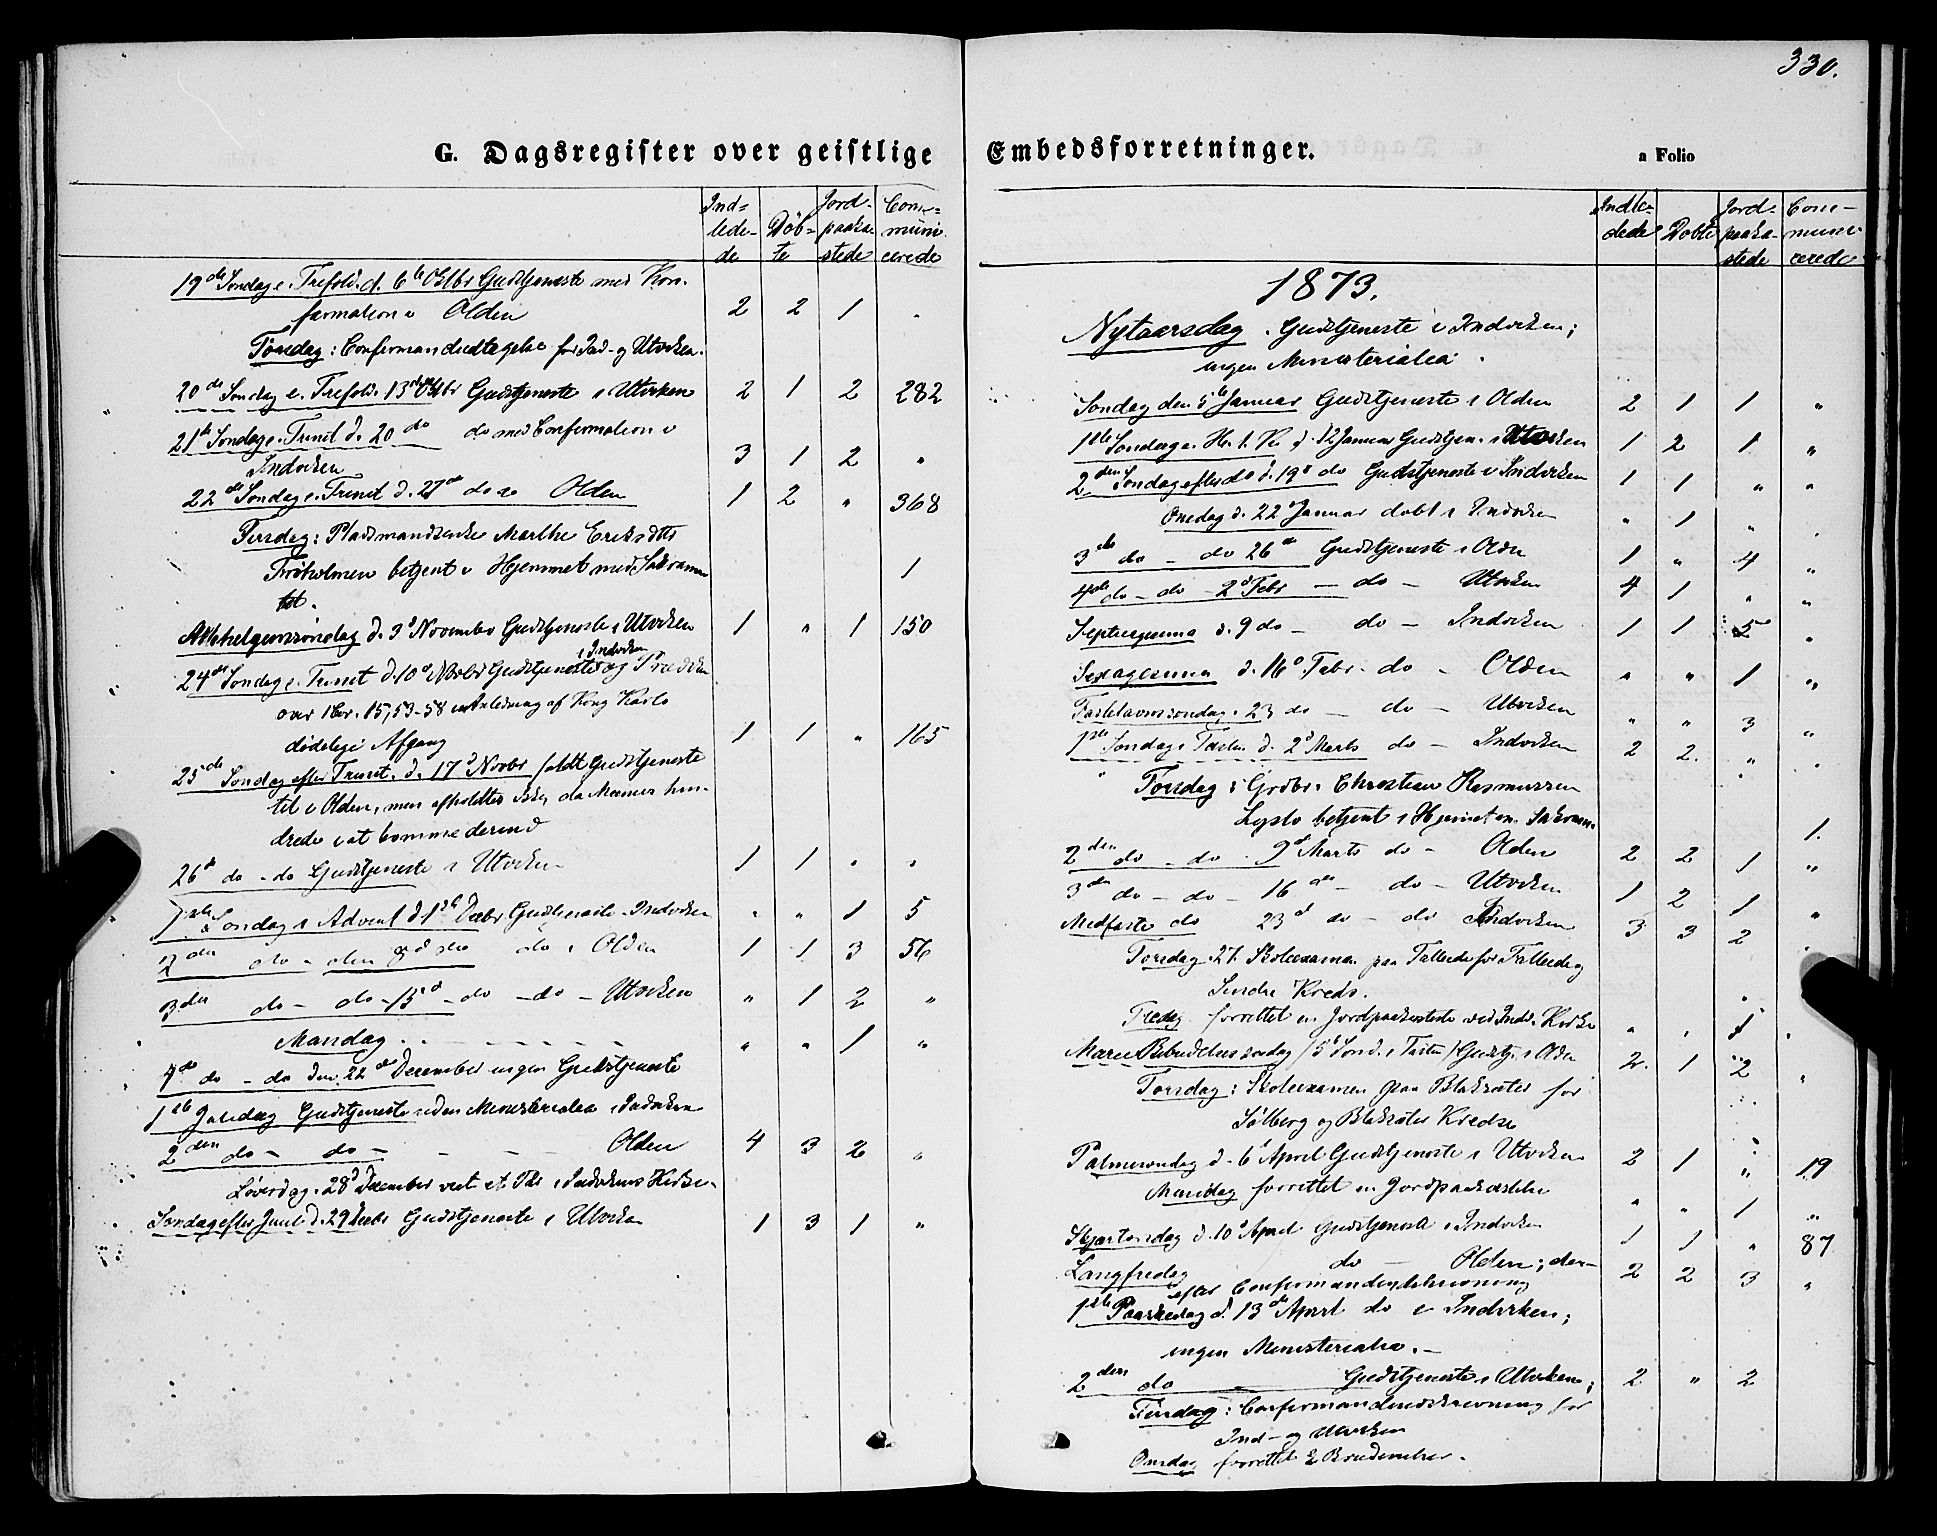 330.
G. Dagsregister over geistlige Embedsforretninger.
a Folio
Ind= lede- de | Döb- te | Jord- paaka stede | Com= muni- cerede
19de Søndag e. Trefold. d. 6te Octbr Gudstjeneste med Kon-
firmation i Olden 2 2 1 .
Torsdag: Confirmandudtagelse for Ind- og Utviken.
20de Søndag e. Trefold. 13de Octbr Gudstjeneste i Utviken 2 1 2 282
21de Søndag e. Trinit d. 20de do med Confirmation i
Indviken 3 1 2 "
22de Søndag e. Trinit d. 27de do i Olden 1 2 " 368
Tirsdag: Pladsmandsenke Marthe Eriksdtr
betjent i Hjemmet med Sakramen
tet. 1
Allehelgenssøndag d. 3d November Gudstjeneste i Utviken 1 " 1 150
24de Søndag e. Trinit d. 10d Novbr Gudstjeneste i Indviken og Prædiken
over 1 Cor. 15,53-58 i Anledning af Kong Karls
dødelige Afgang 1 1 " 165
25de Søndag efter Trinit. d. 17d Novbr faldt Gudstjeneste
til i Olden, men afholdtes ikke, da hin-
dredes i at komme derind
26d do - do Gudstjeneste i Utviken 1 1 " "
1ste Søndag i Advent d. 1ste Decbr Gudstjeneste i Indviken " " 1 5
2den do - do do i Olden 1 1 3 56
3die do - do - 15d - do - do - Utviken " 1 2 "
Mandag " " 1 "
4de do - do den 22de December ingen Gudstjeneste
1ste Juledag Gudstjeneste uden Ministerialia i Indviken
2den do - do - - - Olden 4 3 2 "
Løverdag 28d December i Indvikens Kirke.
Søndag efter Juul d. 29 Decbr Gudstjeneste i Utviken 1 3 1 "
Indle- dede | Döbte | Jord- paaka- stede | Com- muni- cerede
1873.
Nytaarsdag Gudstjeneste i Indviken;
ingen Ministerialia.
Søndag den 5te Januar Gudstjeneste i Olden 2 1 1 "
1ste Søndag e. H. t. K. d. 12 Januar Gudstjen. i Utviken 1 2 1 "
2den Søndag efter do d. 19d do Gudstjeneste i Indviken 1 1 " "
Onsdag d. 22 Januar döbt i Indviken " 1 "
3die do - do 26d Gudstjeneste i Olden 1 " 4 "
4de do - do - 2d Febr - do - Utviken 4 1 " "
Septuagesima d. 9 do - do - Indviken 1 1 5 "
Sexagesima d. 16d Febr. do - Olden " " 1 "
Fastelavnssøndag 23 do - do - Utviken " " 3 "
1ste Søndag i Fasten d. 2d Marts do - Indviken 2 2 " .
Torsdag: Grdbr. Christian Rasmussen
betjent i Hjemmet m. Sakram. 1.
2den do - do 9d Marts do - Olden 2 2 1 "
3die do - do - 16de - do - Utviken 1 2 1 "
Midfaste do 23d do - do Indviken 3 3 2 .
Torsdag 27. Skoleexamen paa
Kreds.
Fredag forrettet en Jordpaakastelse ved Indv. Kirke " . 1 .
Mariæ Bebudelses søndag (5te Sønd. i Fasten) Gudstj. i Olden 2 1 2 "
Torsdag: Skoleexamen paa for
og Kredse
Palmesøndag d. 6d April Gudstjeneste i Utviken 2 1 " 19
Mandag forrettet en Jordpaakastelse " " 1 "
Skjærtorsdag d. 10d April Gudstjeneste i Indviken 1 1 " 87
Langfredag do - Olden; der- 2 2 3 "
efter Confirmandindskrivning
1ste Paaskedag d. 13de April do i Indviken;
ingen Ministerialia. -
2den do - Gudstjeneste i Utviken; 2 " 2
Tirsdag: Confirmandindskrivning for
Ind- og Utviken
Onsdag forrettet 2 Brudevielser.